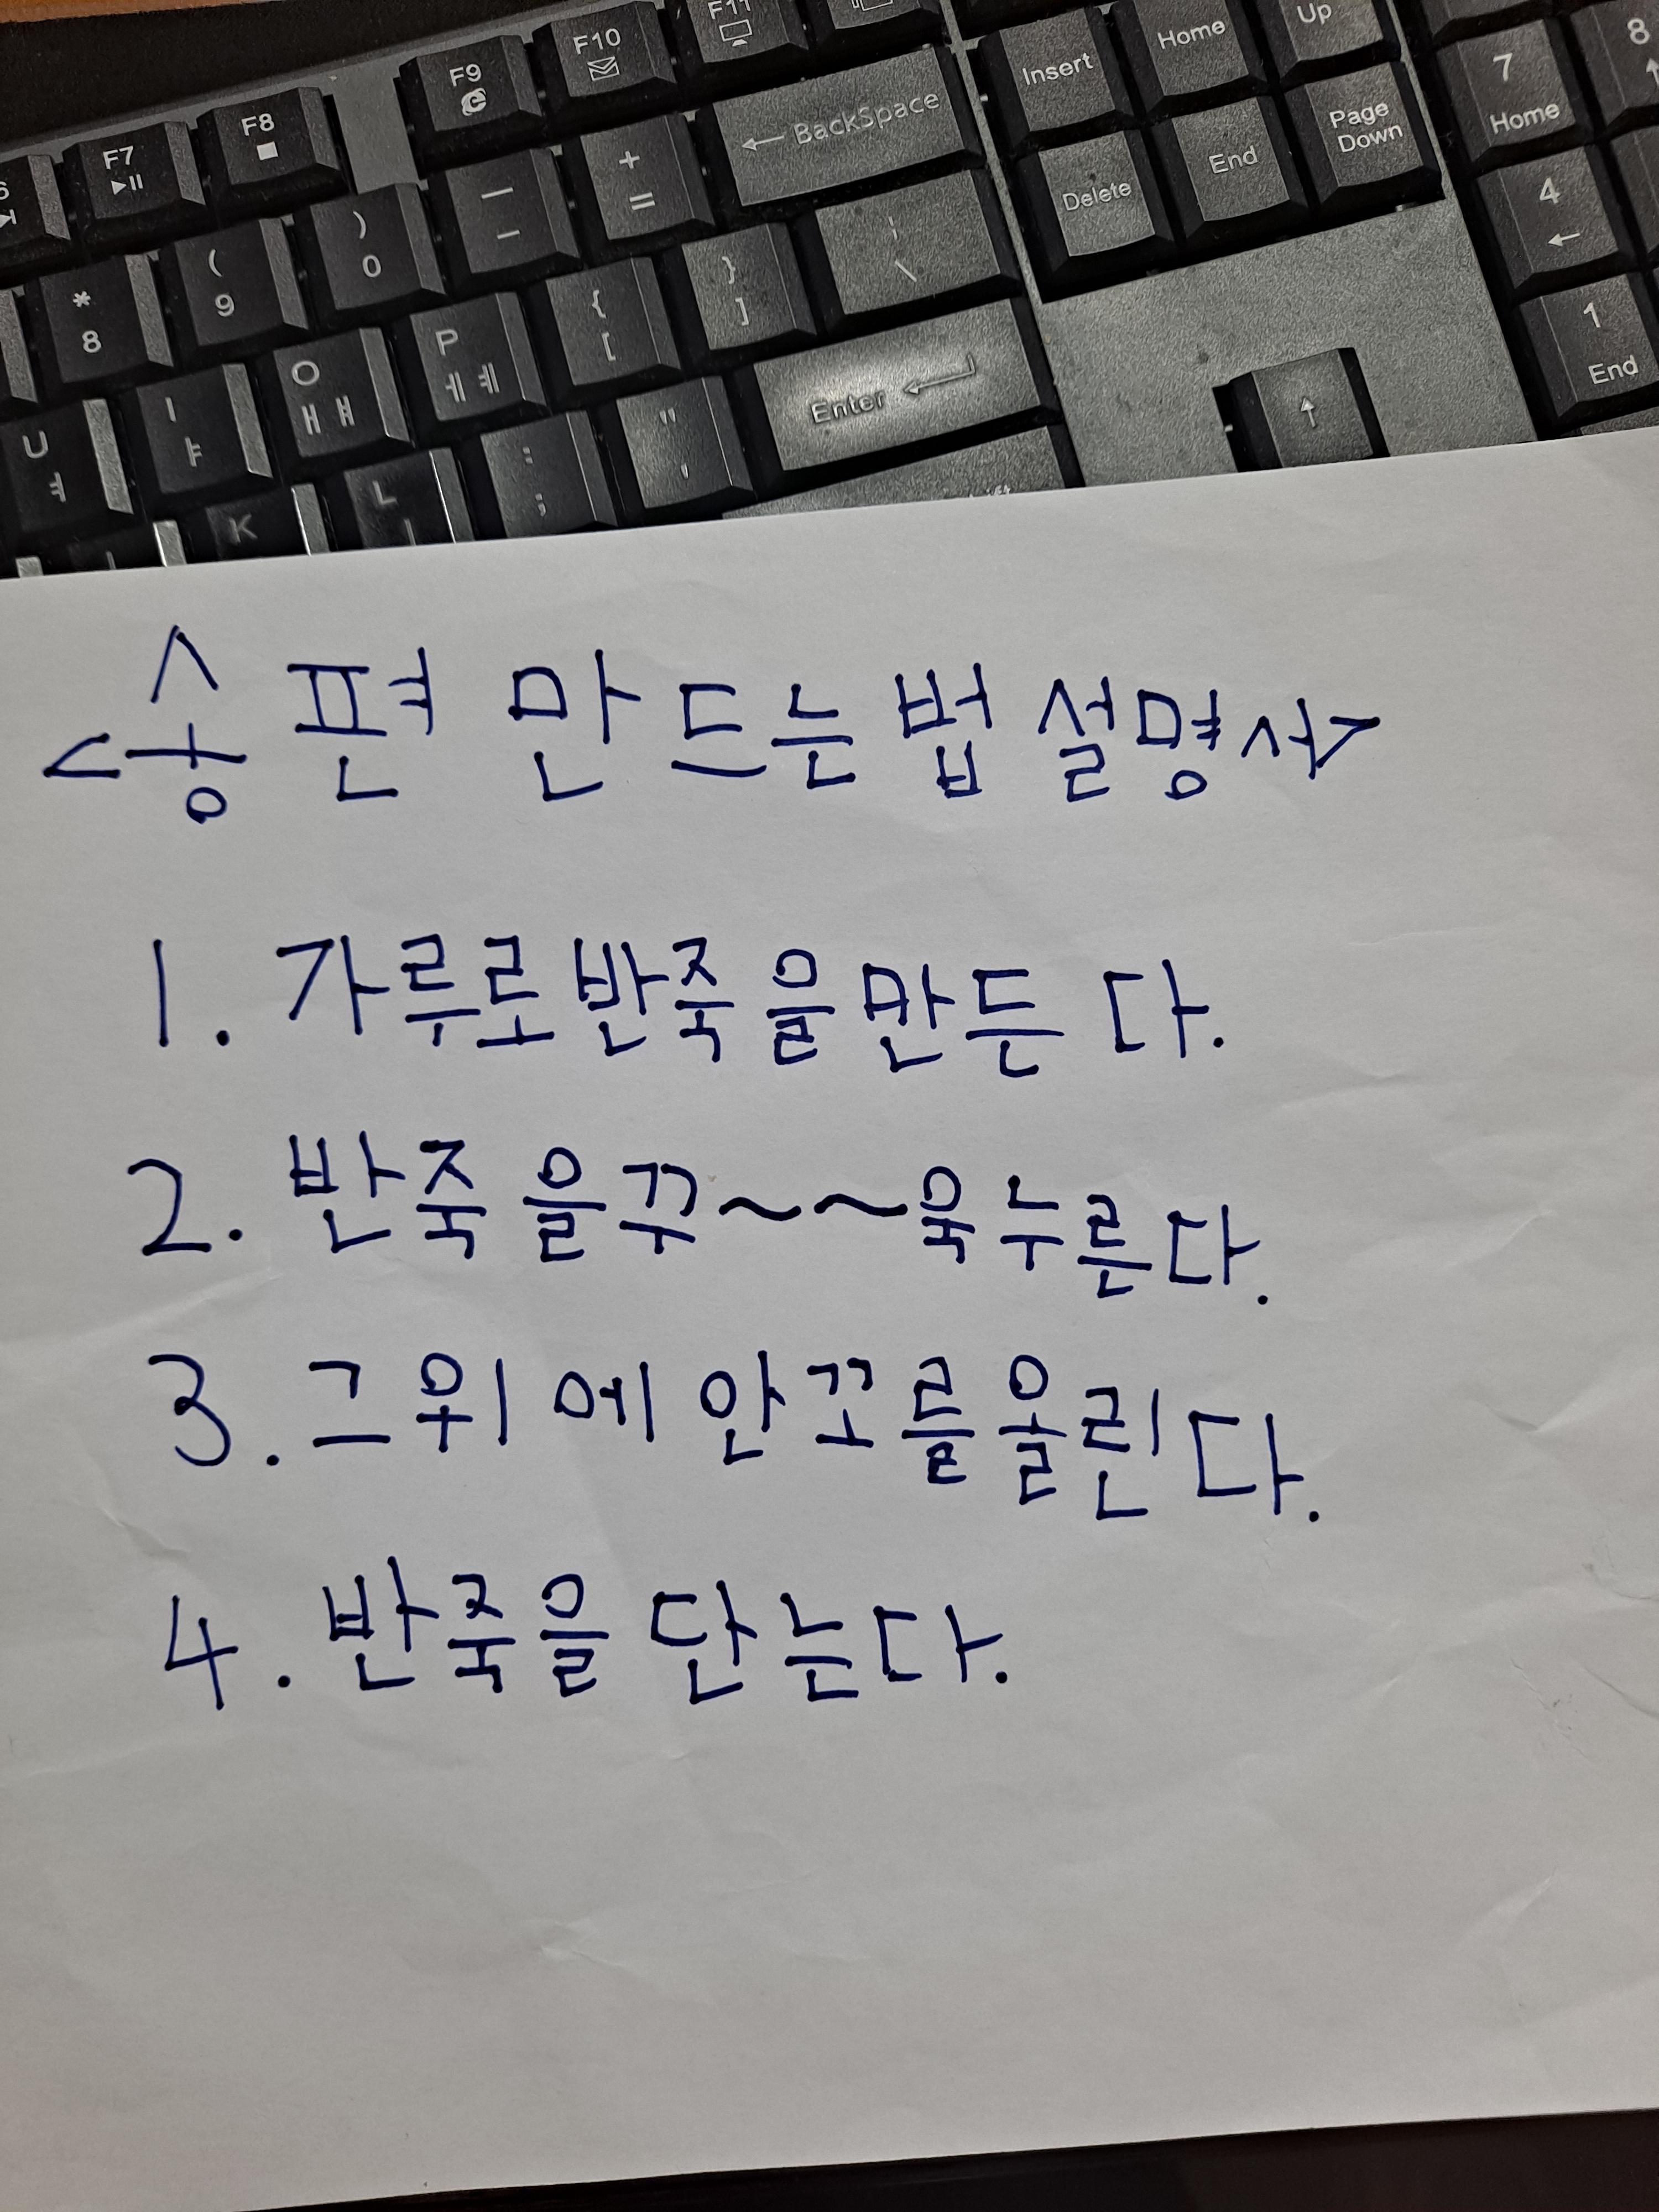 F7
F8
F9
F10
F11
* 8
( 9
) 0
— –
+ =
← BackSpace
Insert
Home
Up
Delete
End
Page Down
7 Home
8
4 ←
1 End
U ㅕ
I ㅑ
O ㅐㅒ
P ㅔㅖ
{ [
} ]
| \
K
L ㅣ
: ;
" '
Enter ←
↑
<송편 만드는법 설명서>
1. 가루로반죽을만든다.
2. 반죽을꾸~~욱누른다.
3. 그위에안꼬를올린다.
4. 반죽을 단는다.